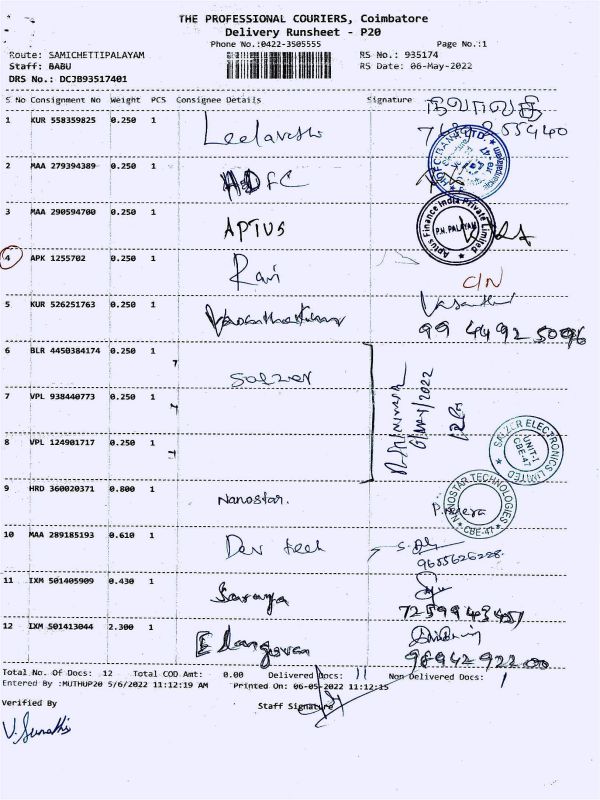 THE PROFESSIONAL COURIERS, Coimbatore
Delivery Runsheet - P20
Phone No.:0422-3505555 Page No.:1
Route: SAMICHETTIPALAYAM RS No.: 935174
Staff: BABU RS Date: 06-May-2022
DRS No.: DCJB93517401
S No Consignment No Weight PCS Consignee Details Signature
1 KUR 558359825 0.250 1
2 MAA 279394389 0.250 1 HDFC
HDFC BANK LTD
3 MAA 290594700 0.250 1 APTUS
Aptus Finance India Private Limited
P.N. PALAYAM
4 APK 1255702 0.250 1 Ravi C/N
5 KUR 526251763 0.250 1 Vasanthakumar
6 BLR 4450384174 0.250 1 Salzer
7 VPL 938440773 0.250 1
8 VPL 124901717 0.250 1
SALZER ELECTRONICS LIMITED
UNIT-I
CBE-47
9 HRD 360020371 0.800 1 Nanostar.
NANOSTAR TECHNOLOGIES
CBE-47
10 MAA 289185193 0.610 1 Dev tech
9655626228.
11 IXM 501405909 0.430 1 Saraya
12 IXM 501413044 2.300 1 Elangovan
98942 922 00
Total No. Of Docs: 12 Total COD Amt: 0.00 Delivered Docs: 11 Non Delivered Docs: 1
Entered By :MUTHUP20 5/6/2022 11:12:19 AM Printed On: 06-05-2022 11:12:15
Verified By Staff Signature